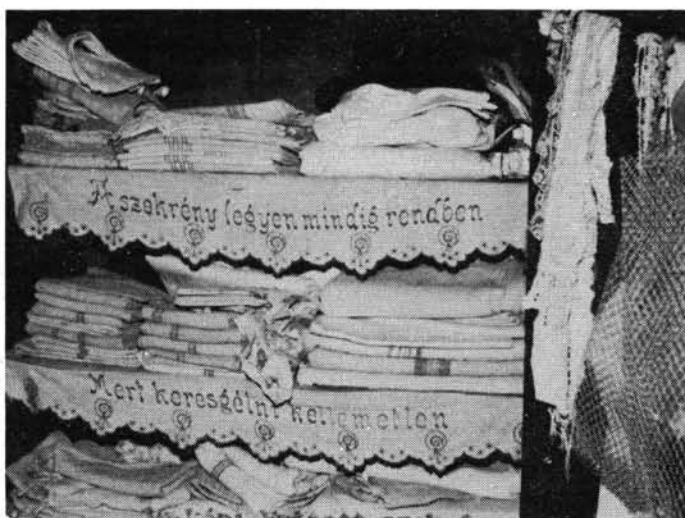 A szekrény legyen mindig rendben
Mert keresgélni kellemetlen